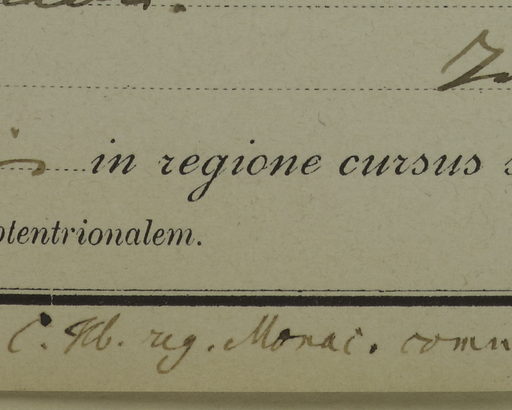 in regione cursus
ptentrionalem.
C. Hb. reg. Monac. comm